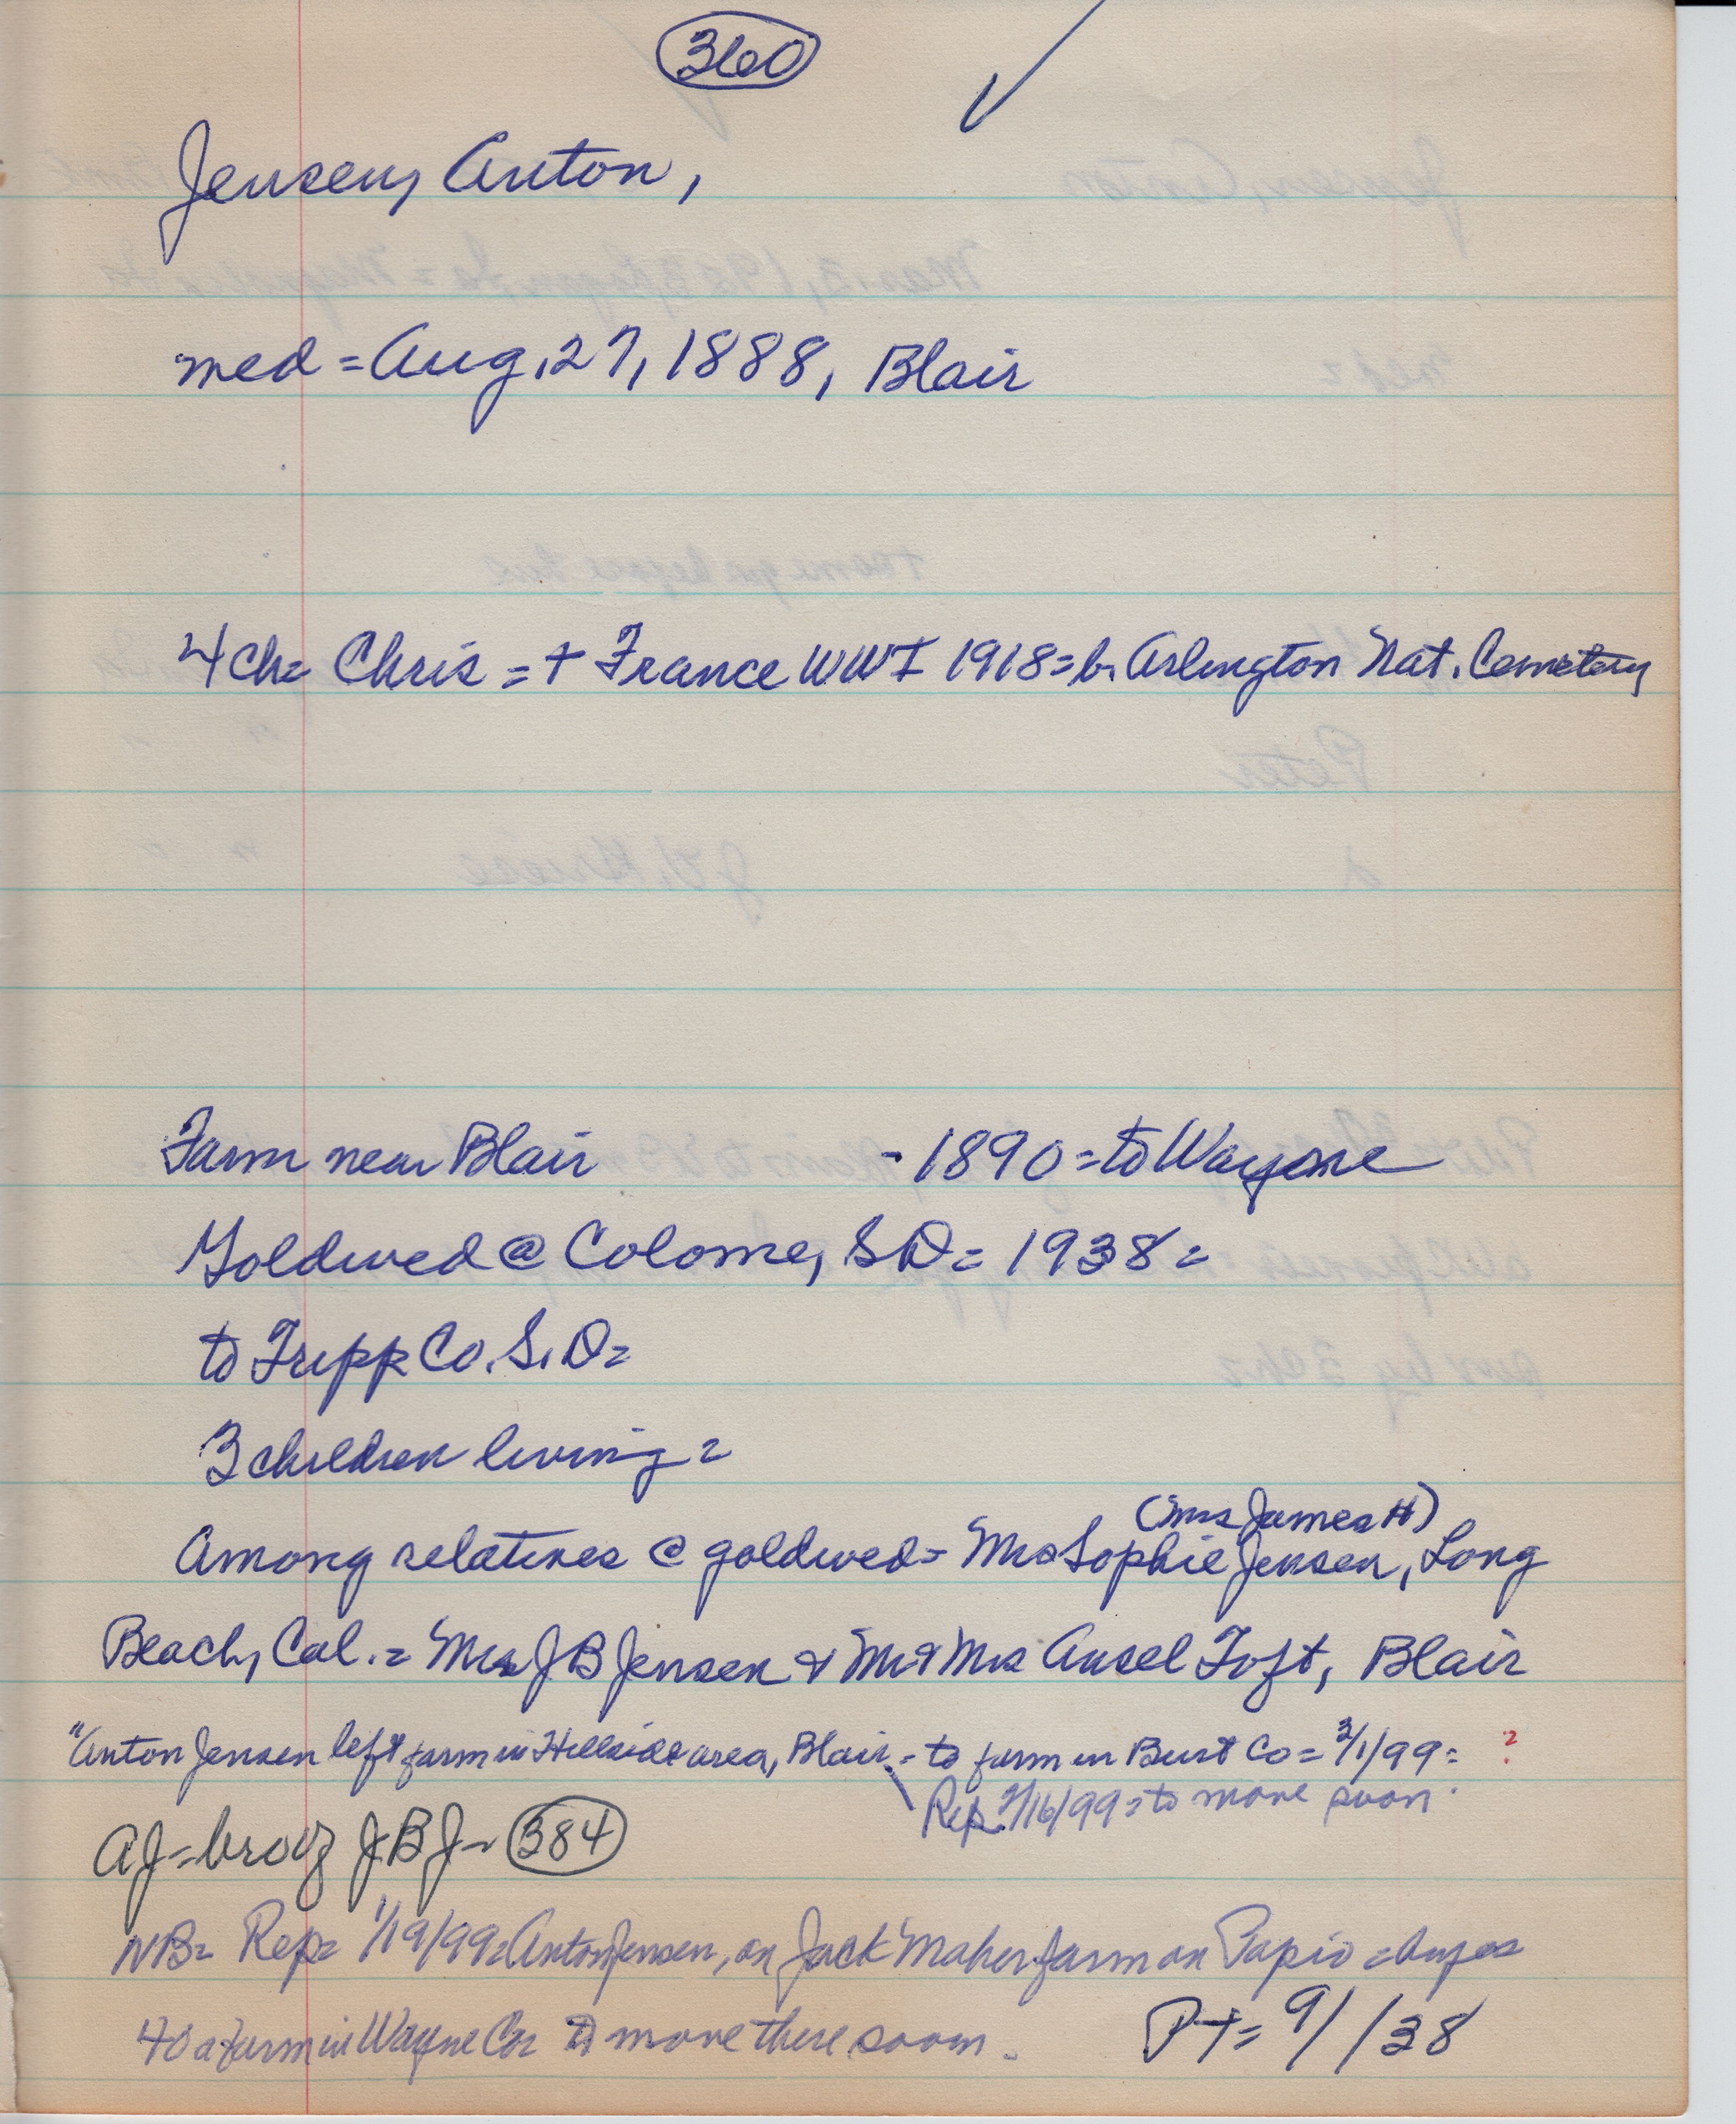 360
Jensen, Anton,
med = Aug. 27, 1888, Blair
4 ch = Chris = + France WWI 1918 = b. Arlington Nat. Cemetery
Farm near Blair - 1890 = to Wayne
Goldwed @ Colome, SD = 1938 =
to Tripp Co. S.D. =
3 children living =
(Mrs James H)
Among relatives @ goldwed = Mrs Sophie Jensen, Long
Beach, Cal. = Mrs J B Jensen & Mr & Mrs Ansel Toft, Blair
"Anton Jensen left farm in Hillside area, Blair - to farm in Burt Co = 3/1/99 = ?
Rep. 2/16/99 = to move soon.
AJ = bro of J B J - 384
NB = Rep = 1/19/99 = Anton Jensen, on Jack Maher farm on Papio = buyes
40 a farm in Wayne Co = to move there soon.
PT = 9/ /38